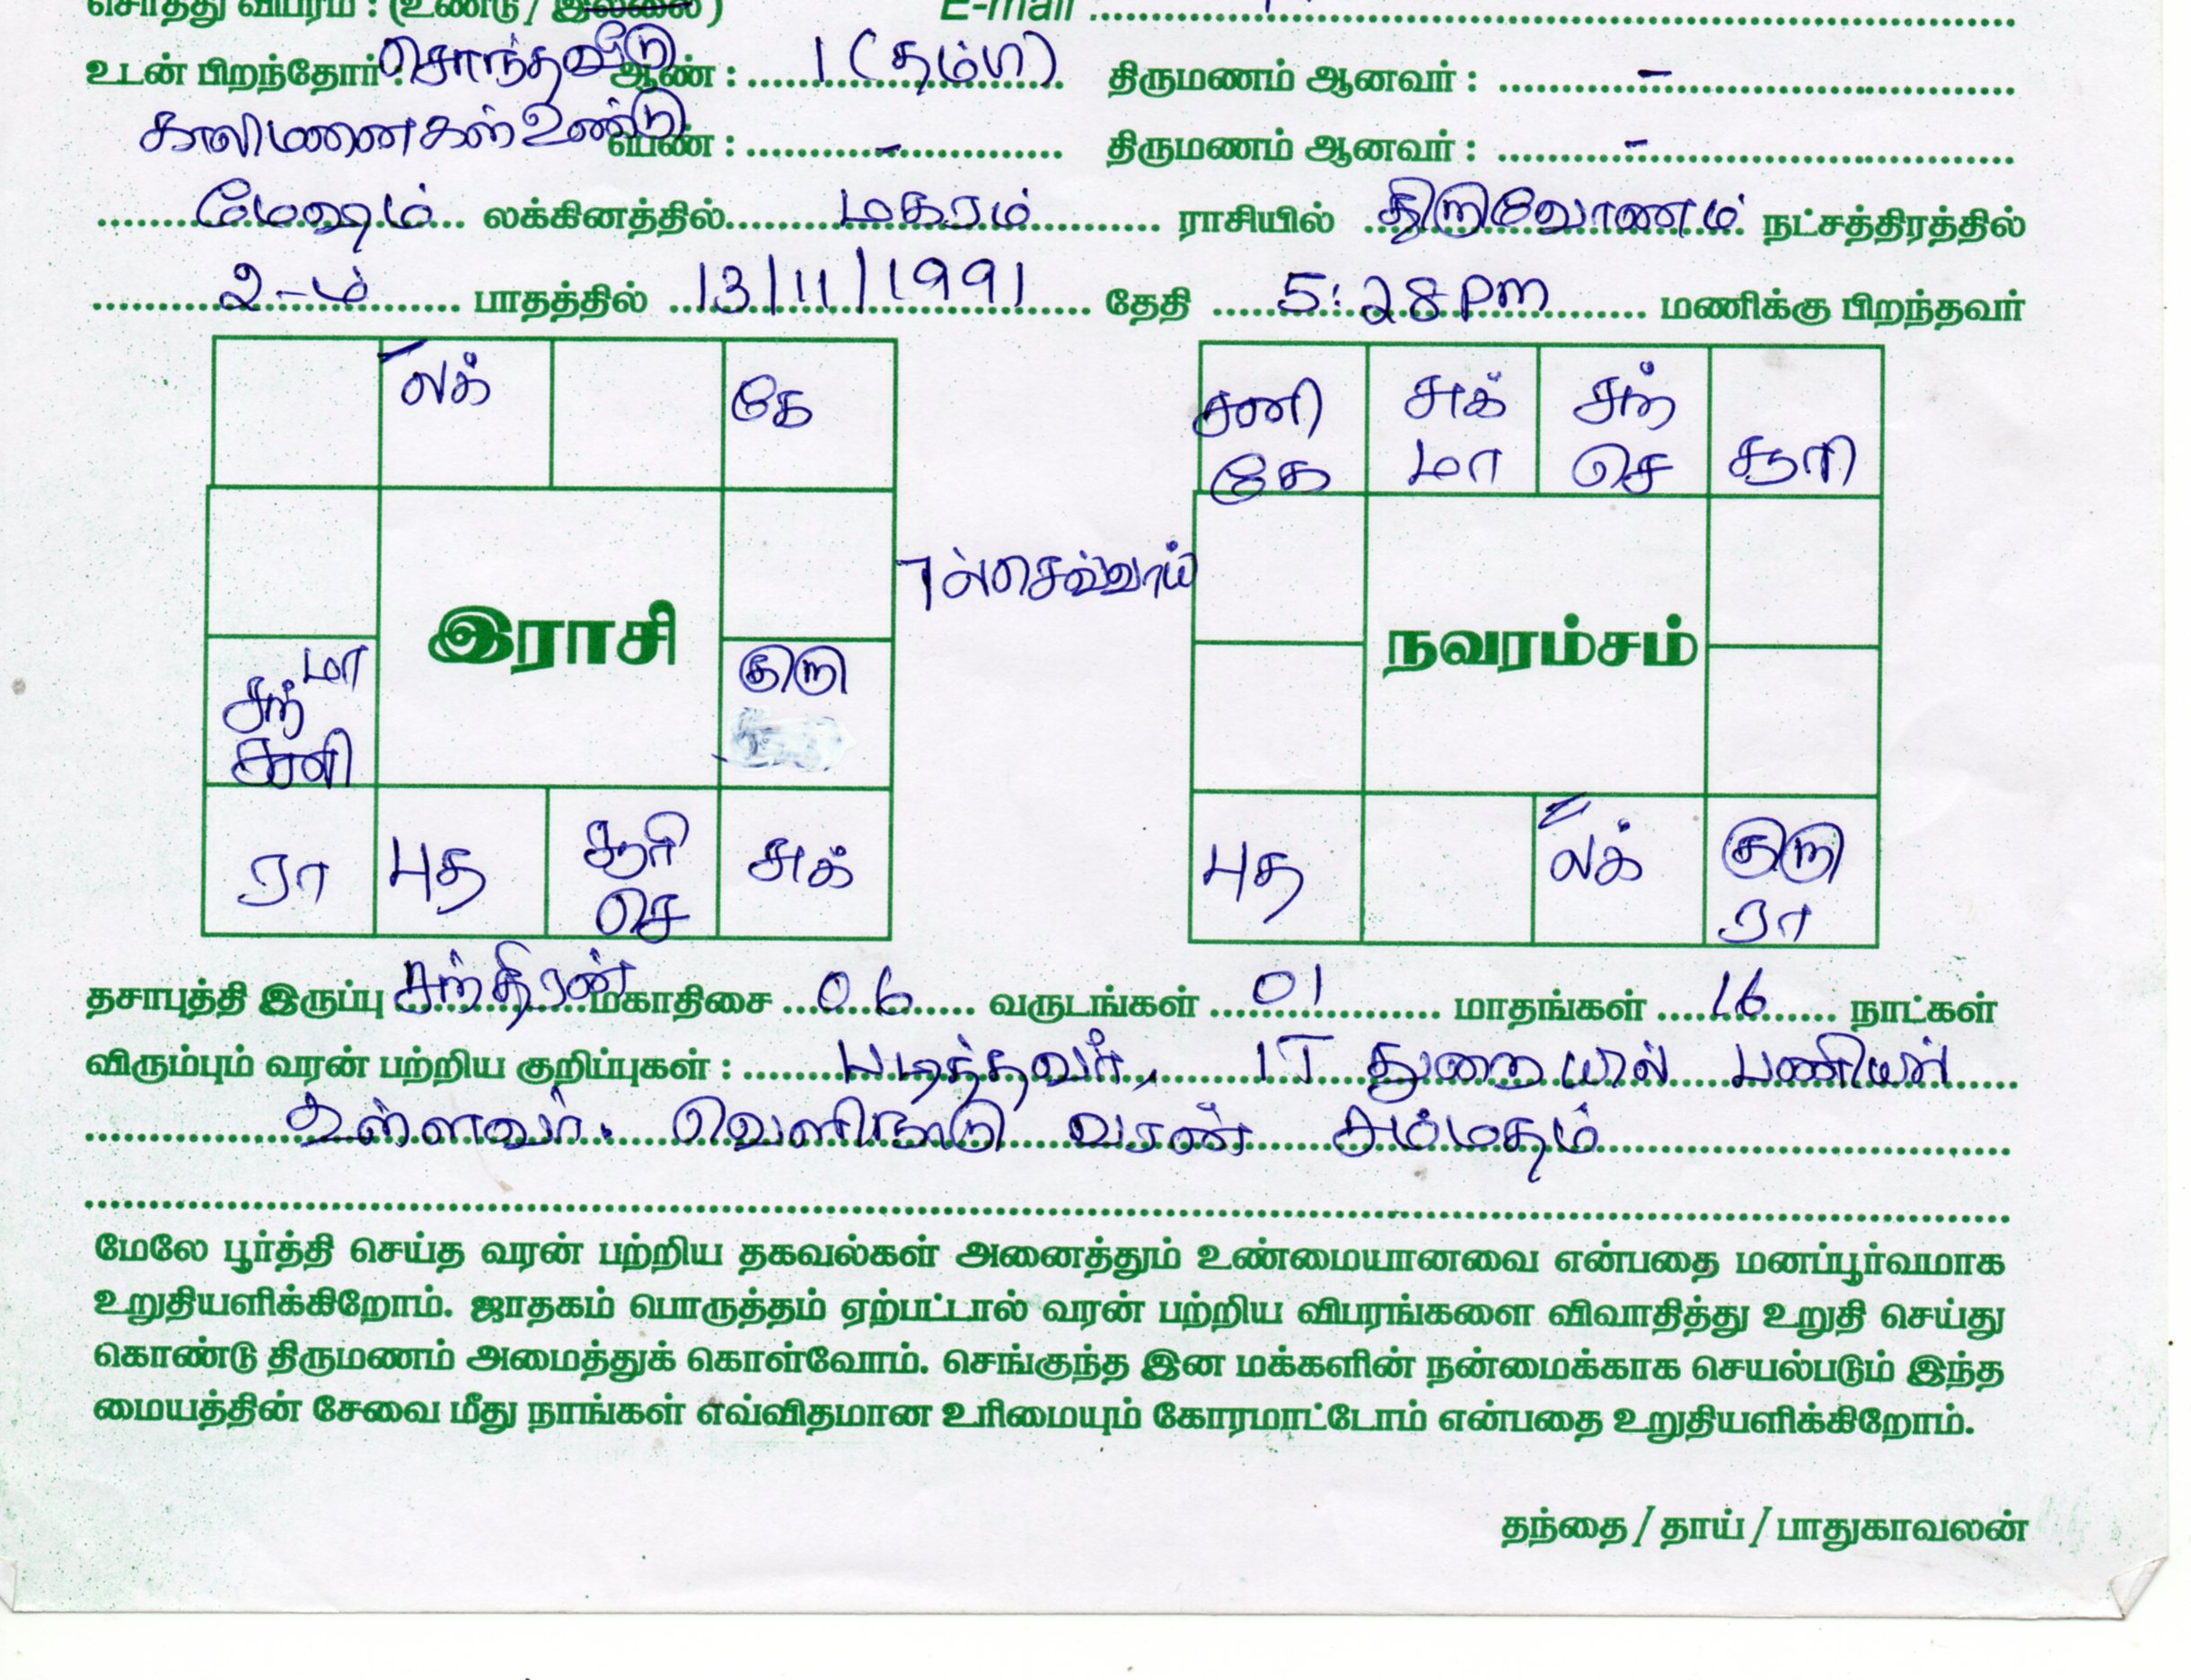 சொத்து விபரம் : (உண்டு / இல்லை) E-mail
உடன் பிறந்தோர் : சொந்தவீடு ஆண் : 1 (தம்பி) திருமணம் ஆனவர் : –
காலிமனைகள் உண்டு பெண் : – திருமணம் ஆனவர் : –
மேஷம் லக்கினத்தில் மகரம் ராசியில் திருவோணம் நட்சத்திரத்தில்
2-ம் பாதத்தில் 13/11/1991 தேதி 5:28 Pm மணிக்கு பிறந்தவர்
லக் கே
மா
சந்
சனி
இராசி
குரு
ரா புத சூரி செ சுக்
7ல் செவ்வாய்
சனி சுக் சந்
கே மா செ சூரி
நவரம்சம்
புத லக் குரு
ரா
தசாபுத்தி இருப்பு சந்திரன் மகாதிசை 06 வருடங்கள் 01 மாதங்கள் 16 நாட்கள்
விரும்பும் வரன் பற்றிய குறிப்புகள் : படித்தவர், IT துறையில் பணியில்
உள்ளவர். வெளிநாடு வரன் சம்மதம்
மேலே பூர்த்தி செய்த வரன் பற்றிய தகவல்கள் அனைத்தும் உண்மையானவை என்பதை மனப்பூர்வமாக
உறுதியளிக்கிறோம். ஜாதகம் பொருத்தம் ஏற்பட்டால் வரன் பற்றிய விபரங்களை விவாதித்து உறுதி செய்து
கொண்டு திருமணம் அமைத்துக் கொள்வோம். செங்குந்த இன மக்களின் நன்மைக்காக செயல்படும் இந்த
மையத்தின் சேவை மீது நாங்கள் எவ்விதமான உரிமையும் கோரமாட்டோம் என்பதை உறுதியளிக்கிறோம்.
தந்தை / தாய் / பாதுகாவலன்